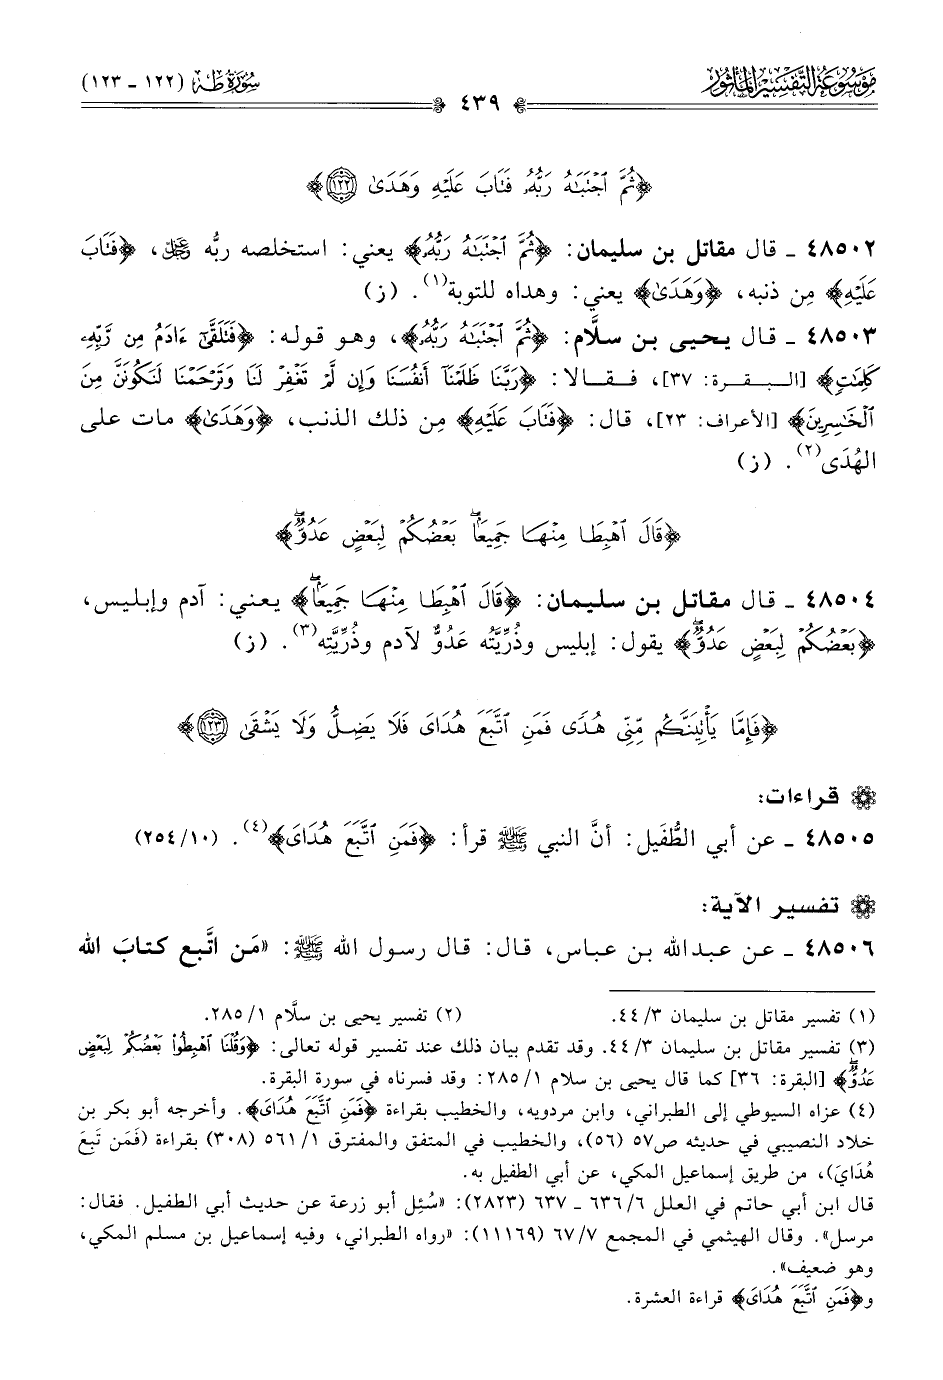 مَوْسُوعَة التَّفْسِيْر المَأْثُور
٤٣٩
سُورَةُ طه (١٢٢ - ١٢٣)
﴿ثُمَّ ٱجۡتَبَٰهُ رَبُّهُۥ فَتَابَ عَلَيۡهِ وَهَدَىٰ ١٢٢﴾
٤٨٥٠٢ - قال مقاتل بن سليمان: ﴿ثُمَّ ٱجۡتَبَٰهُ رَبُّهُۥ﴾ يعني: استخلصه ربُّه عز وجل، ﴿فَتَابَ
عَلَيۡهِ﴾ مِن ذنبه، ﴿وَهَدَىٰ﴾ يعني: وهداه للتوبة(١). (ز)
٤٨٥٠٣ - قال يحيى بن سلَّام: ﴿ثُمَّ ٱجۡتَبَٰهُ رَبُّهُۥ﴾، وهو قوله: ﴿فَتَلَقَّىٰٓ ءَادَمُ مِن رَّبِّهِۦ
كَلِمَٰتٖ﴾ [البقرة: ٣٧]، فقالا: ﴿رَبَّنَا ظَلَمۡنَآ أَنفُسَنَا وَإِن لَّمۡ تَغۡفِرۡ لَنَا وَتَرۡحَمۡنَا لَنَكُونَنَّ مِنَ
ٱلۡخَٰسِرِينَ﴾ [الأعراف: ٢٣]، قال: ﴿فَتَابَ عَلَيۡهِ﴾ مِن ذلك الذنب، ﴿وَهَدَىٰ﴾ مات على
الهُدَى(٢). (ز)
﴿قَالَ ٱهۡبِطَا مِنۡهَا جَمِيعَۢاۖ بَعۡضُكُمۡ لِبَعۡضٍ عَدُوّٞۖ﴾
٤٨٥٠٤ - قال مقاتل بن سليمان: ﴿قَالَ ٱهۡبِطَا مِنۡهَا جَمِيعَۢاۖ﴾ يعني: آدم وإبليس،
﴿بَعۡضُكُمۡ لِبَعۡضٍ عَدُوّٞۖ﴾ يقول: إبليس وذُرِّيَّته عَدُوٌّ لآدم وذُرِّيَّته(٣). (ز)
﴿فَإِمَّا يَأۡتِيَنَّكُم مِّنِّي هُدٗى فَمَنِ ٱتَّبَعَ هُدَايَ فَلَا يَضِلُّ وَلَا يَشۡقَىٰ ١٢٣﴾
قراءات:
٤٨٥٠٥ - عن أبي الطُّفَيل: أنَّ النبي ﷺ قرأ: ﴿فَمَنِ ٱتَّبَعَ هُدَايَ﴾(٤). (١٠/٢٥٤)
تفسير الآية:
٤٨٥٠٦ - عن عبدالله بن عباس، قال: قال رسول الله ﷺ: «مَن اتَّبع كتابَ الله
(١) تفسير مقاتل بن سليمان ٣/ ٤٤. (٢) تفسير يحيى بن سلَّام ١/ ٢٨٥.
(٣) تفسير مقاتل بن سليمان ٣/ ٤٤. وقد تقدم بيان ذلك عند تفسير قوله تعالى: ﴿وَقُلۡنَا ٱهۡبِطُواْ بَعۡضُكُمۡ لِبَعۡضٍ
عَدُوّٞۖ﴾ [البقرة: ٣٦] كما قال يحيى بن سلام ١/ ٢٨٥: وقد فسرناه في سورة البقرة.
(٤) عزاه السيوطي إلى الطبراني، وابن مردويه، والخطيب بقراءة ﴿فَمَنِ ٱتَّبَعَ هُدَايَ﴾. وأخرجه أبو بكر بن
خلاد النصيبي في حديثه ص٥٧ (٥٦)، والخطيب في المتفق والمفترق ١/ ٥٦١ (٣٠٨) بقراءة (فَمَن تَبِعَ
هُدَايَ)، من طريق إسماعيل المكي، عن أبي الطفيل به.
قال ابن أبي حاتم في العلل ٦/ ٦٣٦ - ٦٣٧ (٢٨٢٣): «سُئِل أبو زرعة عن حديث أبي الطفيل. فقال:
مرسل». وقال الهيثمي في المجمع ٧/ ٦٧ (١١١٦٩): «رواه الطبراني، وفيه إسماعيل بن مسلم المكي،
وهو ضعيف».
و﴿فَمَنِ ٱتَّبَعَ هُدَايَ﴾ قراءة العشرة.